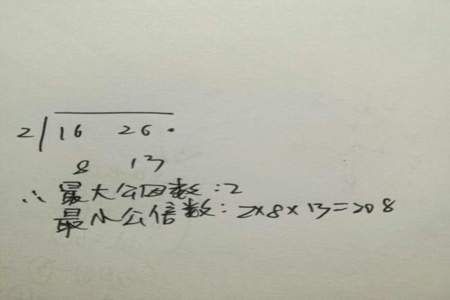 2 16 26.
8 13
∴ 最大公因数:2
最小公倍数:2×8×13=208